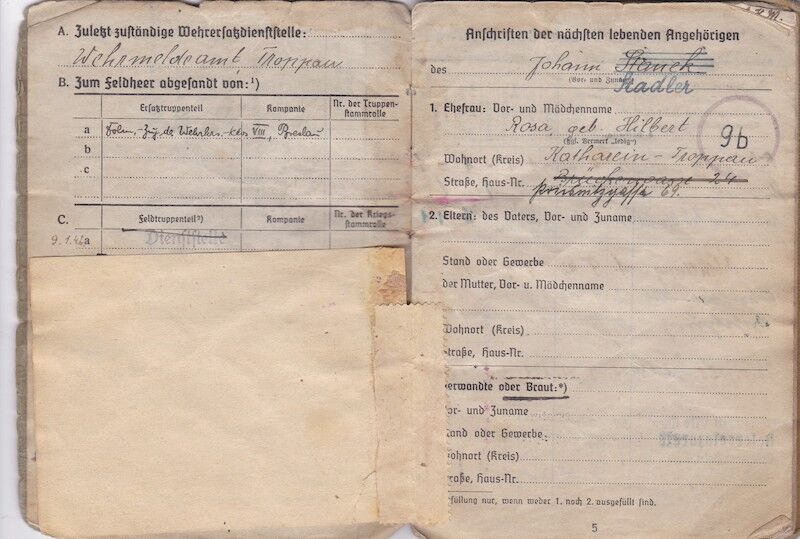 A. Zuletzt zuständige Wehrersatzdienststelle:
Wehrmeldeamt Troppau
B. Zum Feldheer abgesandt von:¹)
Ersatztruppenteil
Kompanie
Nr. der Truppen-
stammrolle
a
VIII, Breslau
b
c
C.
Feldtruppenteil²)
Kompanie
Nr. der Kriegs-
stammrolle
a
Dienststelle
Anschriften der nächsten lebenden Angehörigen
des Johann Stanek
(Vor- und Zuname)
Stadler
1. Ehefrau: Vor- und Mädchenname
Rosa geb. Hilbert
(ggf. Vermerk „ledig")
9b
Wohnort (Kreis) Katharein-Troppau
Straße, Haus-Nr. 24
69.
2. Eltern: des Vaters, Vor- und Zuname
Stand oder Gewerbe
der Mutter, Vor- u. Mädchenname
Wohnort (Kreis)
traße, Haus-Nr.
erwandte oder Braut:*)
or- und Zuname
and oder Gewerbe:
ohnort (Kreis)
raße, Haus-Nr.
füllung nur, wenn weder 1. noch 2. ausgefüllt sind.
5